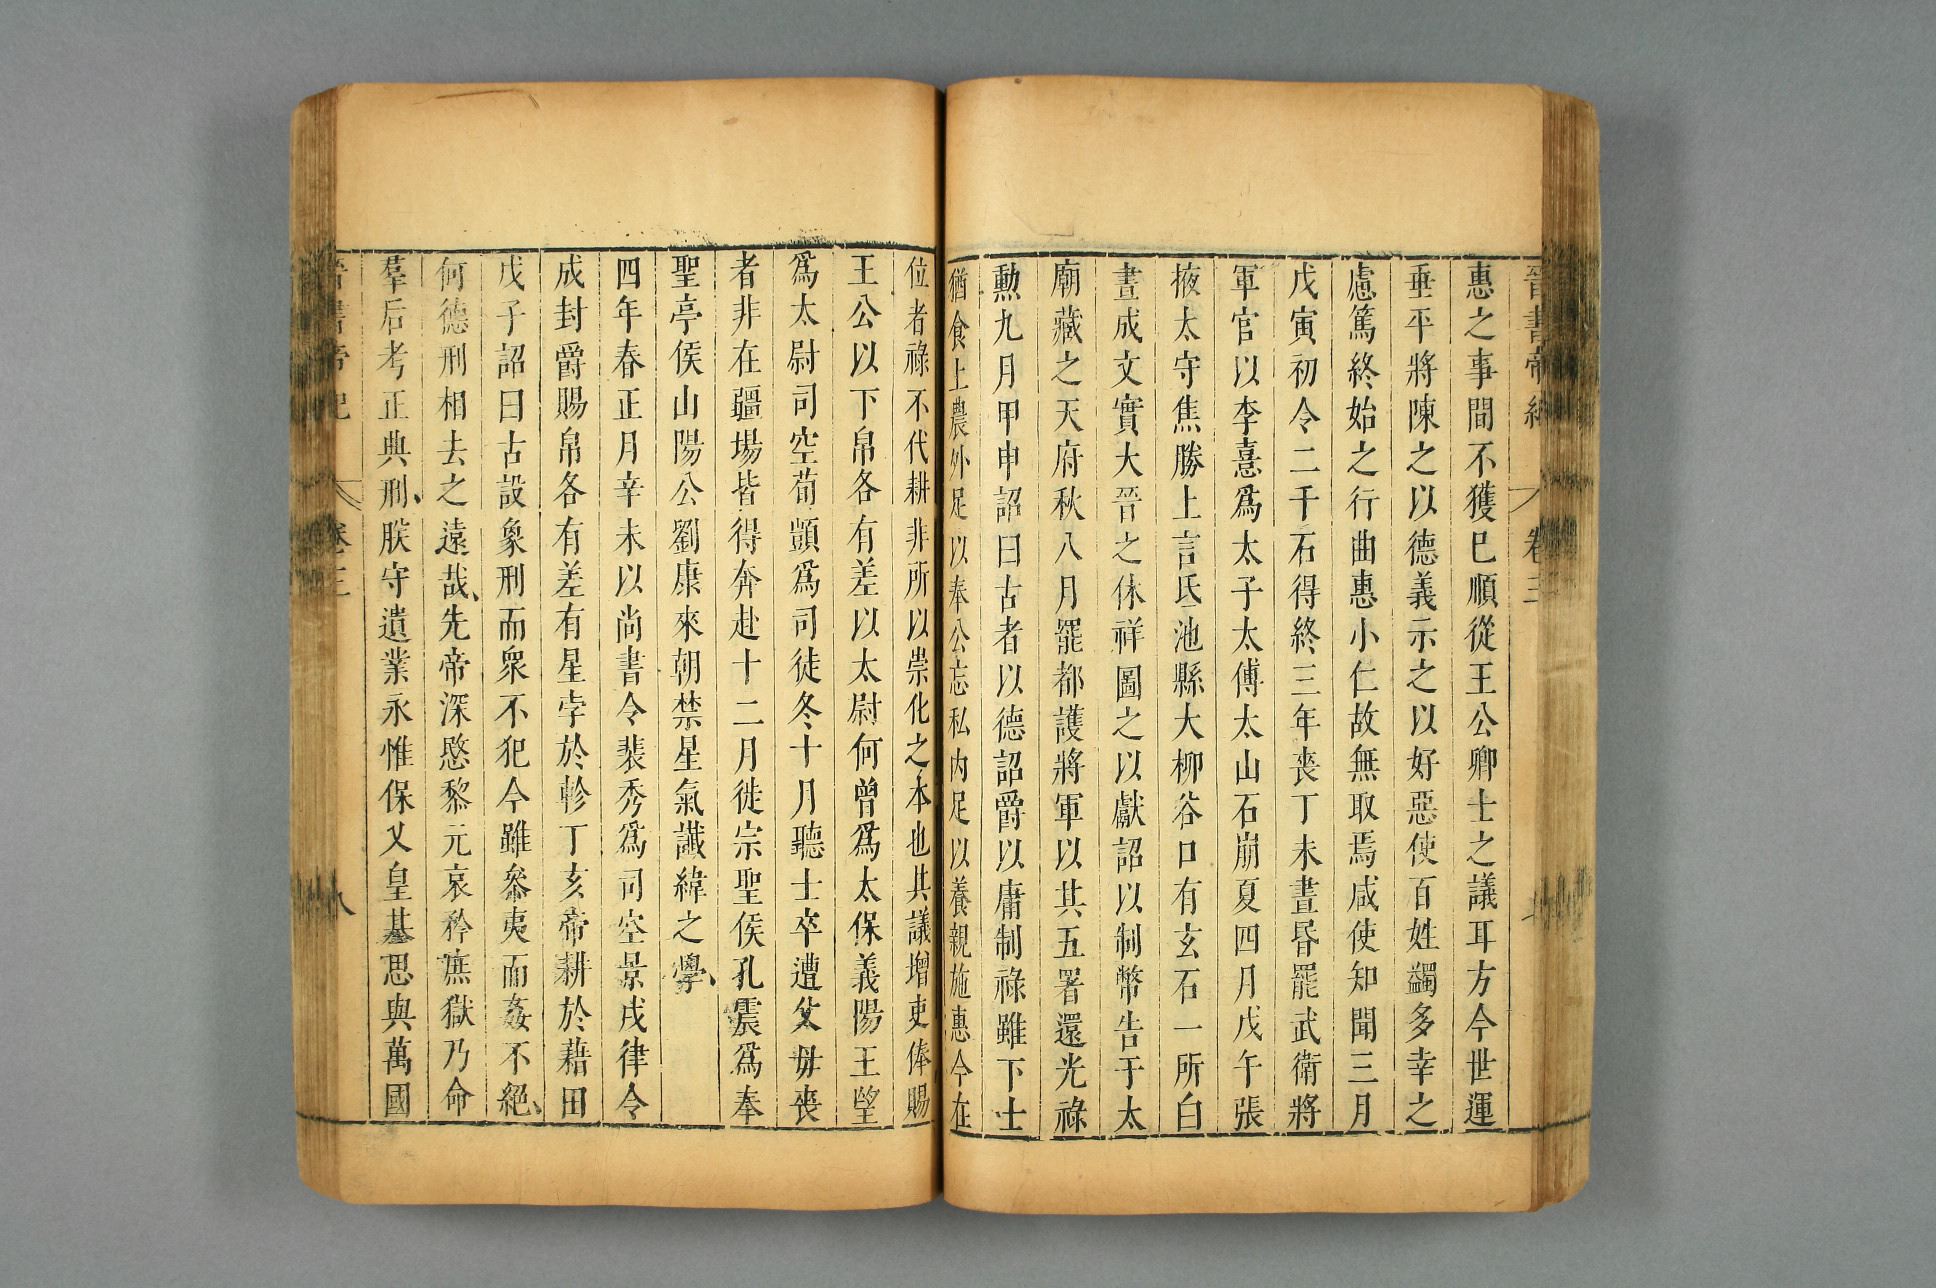 晉書帝紀 卷三
惠之事間不獲已順從王公卿士之議耳方今世運
垂平將陳之以德義示之以好惡使百姓蠲多幸之
慮篤終始之行曲惠小仁故無取焉咸使知聞三月
戊寅初令二千石得終三年喪丁未晝昏罷武衛將
軍官以李憙爲太子太傅太山石崩夏四月戊午張
掖太守焦勝上言氐池縣大柳谷口有玄石一所白
晝成文實大晉之休祥圖之以獻詔以制幣告于太
廟藏之天府秋八月罷都護將軍以其五署還光祿
勲九月甲申詔曰古者以德詔爵以庸制祿雖下士
猶食上農外足以奉公忘私內足以養親施惠今在
位者祿不代耕非所以崇化之本也其議增吏俸賜
王公以下帛各有差以太尉何曾爲太保義陽王望
爲太尉司空荀顗爲司徒冬十月聽士卒遭父毋喪
者非在疆場皆得奔赴十二月徙宗聖侯孔震爲奉
聖亭侯山陽公劉康來朝禁星氣讖緯之學
四年春正月辛未以尚書令裴秀爲司空景戌律令
成封爵賜帛各有差有星孛於軫丁亥帝耕於藉田
戊子詔曰古設象刑而衆不犯今雖參夷而姦不絕
何德刑相去之遠哉先帝深愍黎元哀矜庶獄乃命
羣后考正典刑朕守遺業永惟保乂皇基思與萬國
晉書帝紀 卷三 八